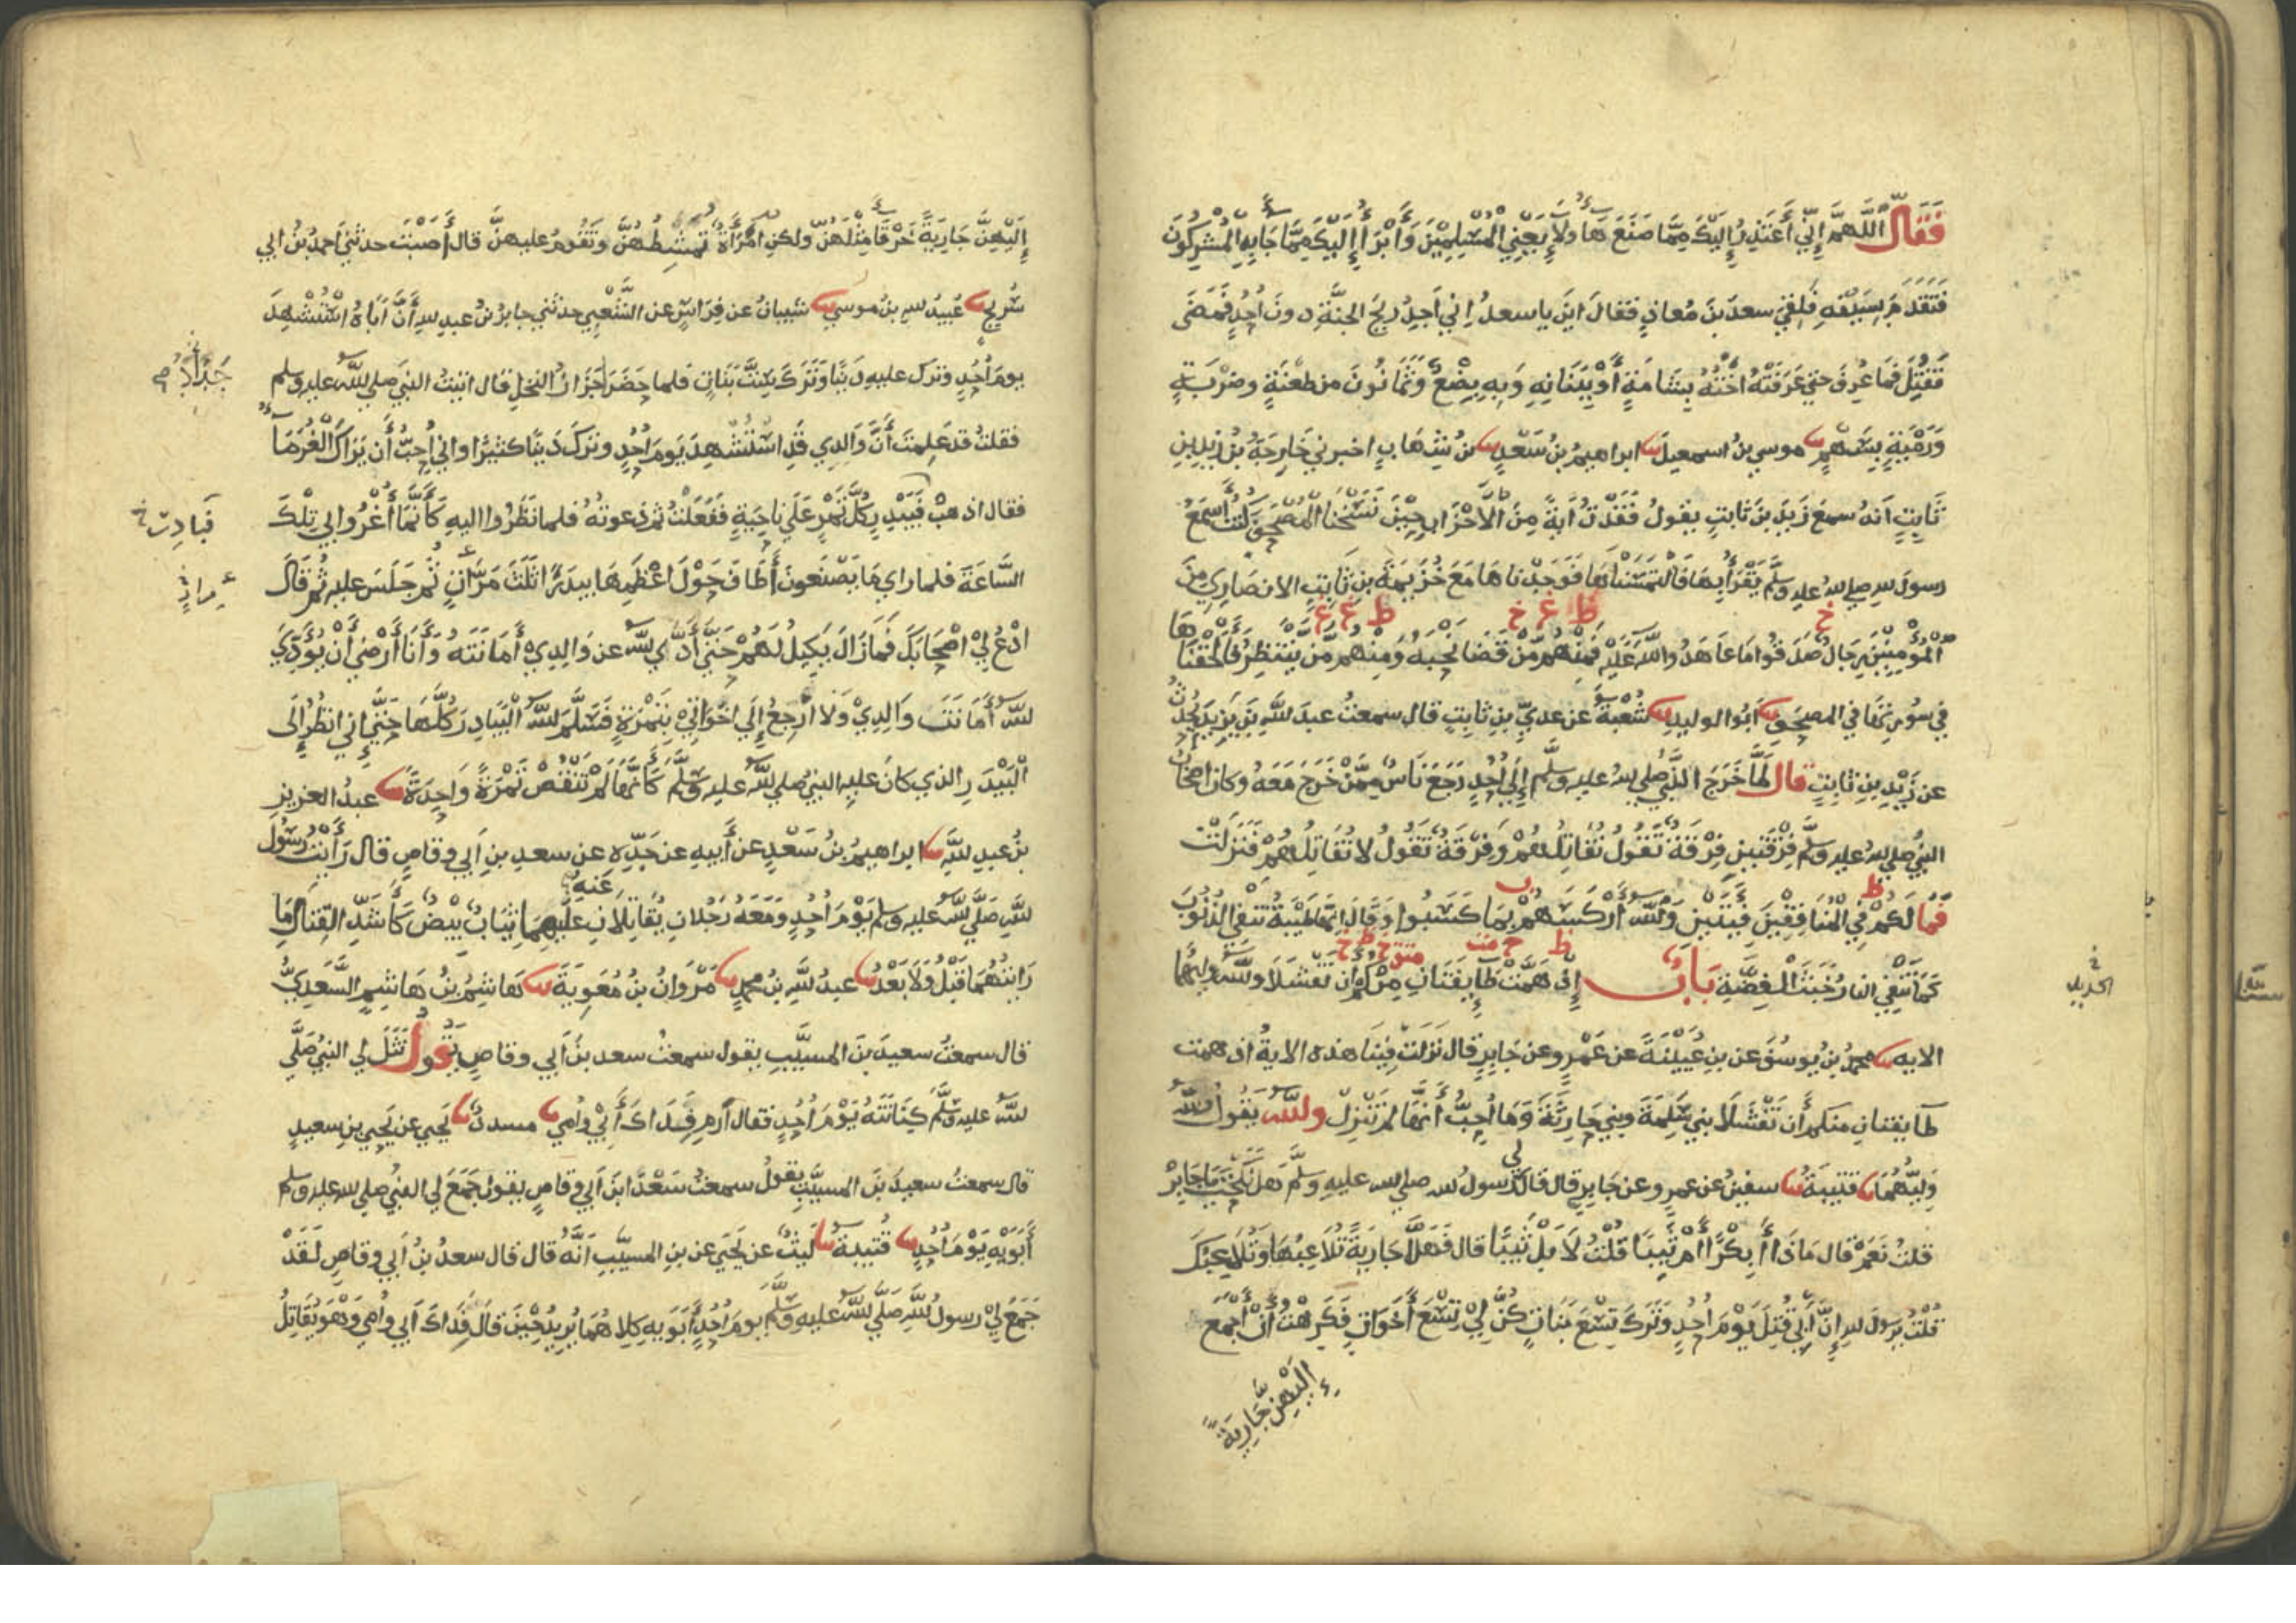 فَقَالَ اللَّهُمَّ إِنِّي أَعْتَذِرُ إِلَيْكَ مِمَّا صَنَعَ هَاولَاءِ يَعْنِي الْمُسْلِمِينَ وَأَبْرَأُ إِلَيْكَ مِمَّا جَا بِهِ الْمُشْرِكُونَ
فَتَقَدَّمَ بِسَيْفِهِ فَلَقِيَ سعدَ بنَ مُعاذٍ فقالَ اينَ يا سعدُ اِني اَجِدُ رِيحَ الجنَّةِ دونَ اُحُدٍ فَمَضَى
فَقُتِلَ فَمَا عُرِفَ حتي عَرَفَتْهُ اُخْتُهُ بِشَامَةٍ أَوْ بِبَنَانِهِ وَبِهِ بِضْعٌ وَثَمَانُونَ من طعْنَةٍ وضرْبَةٍ
وَرَمْيَةٍ بِسَهْمٍ موسي بنُ اسمعيلَ ابراهيمُ بنُ سَعْدٍ بنُ شِهَابٍ اخبرني خَارِجَةُ بْنُ زيدِ بنِ
ثَابِتٍ اَنهُ سمعَ زَيدَ بنَ ثابتٍ يقولُ فَقَدْتُ اَيةً مِنَ الْأَحْزَابِ حِيْنَ نَسَخْنَا الْمُصْحَفَ كُنتُ أَسْمَعُ
رسولَ للهِ صلي لله عليه وسلَّم يَقْرَأُ بِهَا فَالْتَمَسْنَاهَا فَوَجَدْنَاهَا مَعَ خُزَيمَةَ بنِ ثَابِتٍ الانصَارِي مِنَ
الْمُؤْمِنِينَ رِجَالٌ صَدَقُوا مَا عَاهَدُوا للَّهَ عَلَيْهِ فَمِنْهُم مَّنْ قَضَا نَحْبَهُ وَمِنْهُم مَّن يَنْتَظِرُ فَأَلْحَقْنَاهَا
في سُورَتِهَا في المصحَفِ اَبُوا الوليدِ شُعْبَةُ عن عديِّ بنِ ثابِتٍ قال سمعتُ عبدَ للَّهِ بنَ يَزِيدَ يُحَدِّثُ
عن زَيْدِ بنِ ثابِتٍ قال لَمَّا خَرَجَ النَّبِيُّ صلي لله عليه وسلَّم إِلَى اُحُدٍ رَجَعَ نَاسٌ مِمَّنْ خَرَجَ مَعَهُ وكان اصحابُ
النبيِّ صلي لله عليه وسلَّم فِرْقَتينِ فِرْقَةً تَقُولُ نُقَاتِلُهُمْ وَفِرْقَةً تَقُولُ لا نُقَاتِلُهُمْ فَنَزَلَتْ
فَمَا لَكُمْ فِي الْمُنَافِقِيْنَ فِيَتَيْنِ وَللَّهُ أَرْكَسَهُمْ بِمَا كَسَبُوا وَقَالَ اِنَّهَا طَيْبَةُ تَنْفِي الذُّنُوبَ
كَمَا تَنْفِي النارُ خَبَثَ الْفِضَّةِ بَابٌ إِذْ هَمَّتْ طَايِفَتَانِ مِنْكُمْ اَنْ تَفْشَلَا وللَّهُ وليُّهُمَا
الايه محمدُ بنُ يوسُفَ عن بنِ عُيَيْنَةَ عن عَمْرٍو عن جَابِرٍ قال نَزَلَتْ فِيْنَا هذه الايةُ اذ همت
طَايِفتانِ منكم أَن تَفْشَلَا بني سَلِمَةَ وبني حَارِثَةَ وَمَا اُحِبُّ أَنَّهَا لم تَنْزِلْ وللَّهُ يَقُولُ وللَّهُ
وَلِيُّهُمَا قتيبَةُ سفينُ عن عمرٍو عن جَابِرٍ قال قالَ لي رسولُ لله صلي لله عليهِ وسلَّم هَلْ نَكَحْتَ يَا جَابِرُ
قلتُ نَعَمْ قال مَاذَا أَبِكْرًا أَمْ ثَيِّبًا قُلْتُ لَا بَلْ ثَيِّبًا قال فَهَلَّا جَارِيَةً تُلَاعِبُهَا وَتُلَاعِبُكَ
قُلْتُ يرسولَ للهِ إِنَّ أَبِي قُتِلَ يَوْمَ اُحُدٍ وَتَرَكَ تِسْعَ بَنَاتٍ كُنَّ لِي تِسْعَ أَخَوَاتٍ فَكَرِهْتُ أَنْ أَجْمَعَ
إِلَيْهِنَّ جَارِيَةً
إِلَيْهِنَّ جَارِيَةً خَرْقَا مِثْلَهُنَّ ولكنِ امْرَأَةً تَمْشُطُهُنَّ وَتَقُومُ عليهنَّ قال أَصَبْتَ حدثني احمدُ بنُ ابي
سُرَيجٍ عُبيدُ للهِ بنُ موسي شيبانُ عن فِرَاسٍ عن الشَّعْبِي حدثني جابرُ بنُ عبدِ للهِ أَنَّ أَبَاهُ اسْتُشْهِدَ
يومَ اُحُدٍ وترَك عليهِ دَيْنًا وَتَرَكَ سِتَّ بَنَاتٍ فلما حَضَرَ جَزَازُ النخلِ قال اتيتُ النبيَ صلي للَّه عليه وسلم
فقلتُ قد عَلِمتَ أَنَّ وَالِدِي قَدِ اسْتُشْهِدَ يَومَ اُحُدٍ وترَكَ دَيْنًا كثيرًا واني اُحِبُّ أَن يَرَاكَ الْغُرَمَا
فقال اذهبْ فَبَيْدِرْ كُلَّ تَمْرٍ عَلَى نَاحِيَةٍ فَفَعَلْتُ ثم دعوتُهُ فلما نَظَرُوا اليهِ كَأَنَّمَا أُغْرُوا بي تِلْكَ
السَّاعَةَ فلما رَاي مَا يَصْنَعونَ أَطَافَ حَوْلَ اعْظَمِهَا بيدَرًا ثلثَ مَرَّاتٍ ثُمَّ جَلَسَ عليهِ ثُمَّ قَالَ
ادْعُ لِيْ اصْحَابَكَ فَمَا زَالَ يَكِيلُ لَهُمْ حَتَّى أَدَّي للَّه عن وَالِدِيْ أَمَانَتَهُ وَأَنَا أَرْضَي أَنْ يُؤَدِّيَ
للَّهُ أَمَانَتَ وَالِدِيْ وَلَا ارْجِعُ إِلَي اَخَوَاتِيْ بِتَمْرَةٍ فَسَلَّمَ للَّهُ الْبَيَادِرَ كُلَّهَا حَتَّي إِني انظرُ إِلَى
الْبَيْدَرِ الذي كانَ عليهِ النبيُّ صلي للَّه عليه وسلَّمَ كَأَنَّهَا لَمْ تَنْقُصْ تَمْرَةً وَاحِدَةً عبدُ العزيزِ
بنُ عبدِ للَّهِ ابراهيمُ بنُ سَعْدٍ عن أَبيهِ عن جَدِّهِ عن سعدِ بنِ اَبي وقاصٍ قال رَأَيْتُ رسُولَ
للَّهِ صَلَّي للَّه عليه وسلم يَوْمَ اُحُدٍ وَمَعَهُ رَجُلَانِ يُقَاتِلَانِ عَنهُ عليهما ثِيَابٌ بِيْضٌ كَأَشَدِّ القِتَالِ مَا
رَايتُهُمَا قَبْلُ وَلَا بَعْدُ عبدُ للَّهِ بنُ محمدٍ مَرْوَانُ بنُ مُعَوِيَةَ هَاشِمُ بنُ هَاشِمٍ السَّعدِيُّ
قال سمعتُ سعيدَ بنَ المسيَّبِ يقول سمعتُ سعدَ بنَ اَبي وقاصٍ يَقُولُ نَثَلَ لِي النبيُّ صَلَّي
للَّه عليه وسلَّمَ كِنَانَتَهُ يَوْمَ اُحُدٍ فقال اَرمِ فِدَاكَ أَبِيْ وَاُمي مسددٌ يَحيي عن يَحيي بنِ سعيدٍ
قال سمعتُ سعيدَ بنَ المسيَّبِ يَقولُ سمعتُ سَعْدَا بنَ اَبي وقاصٍ يقول جَمَعَ لي النبيُّ صلي لله عليه وسلم
أَبَوَيْهِ يَوْمَ اُحُدٍ قُتَيبةُ لَيثٌ عن يَحيَي عن بنِ المسيَّبِ اَنَّهُ قال قال سعدُ بنُ اَبي وقاصٍ لَقَدْ
جَمَعَ لِيْ رسولُ للَّهِ صَلَّي للَّه عليه وسلَّمَ يومَ اُحُدٍ أَبَوَيهِ كِلَاهُمَا يُرِيدُ حِيْنَ قَالَ فِدَاكَ اَبي وَاُمي وَهْوَ يُقَاتِلُ